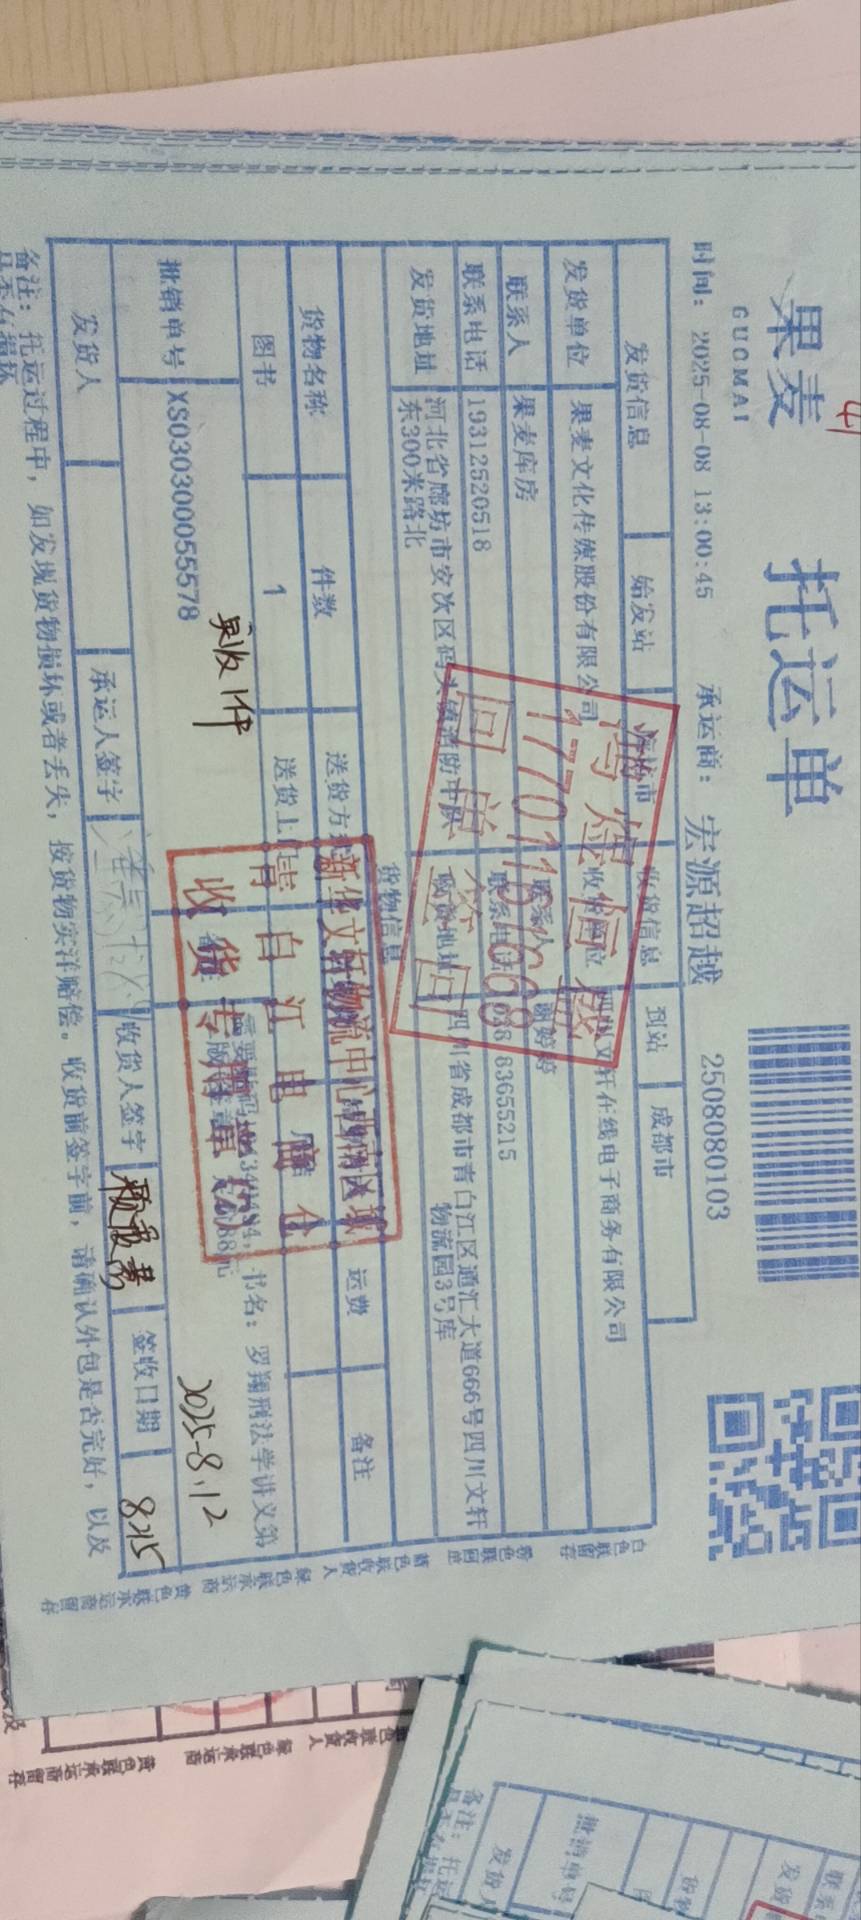 果麦
GUOMAI
托运单
时间： 2025-08-08 13:00:45 承运商： 宏源超越 2508080103
发货信息 始发站 收货信息 到站 成都市
发货单位 果麦文化传媒股份有限公司 收货单位 文轩在线电子商务有限公司
联系人 果麦库房 联系人
联系电话 19312520518 联系电话 83655215
发货地址 河北省廊坊市安次区码头镇消防中队东300米路北 收货地址 四川省成都市青白江区通汇大道666号四川文轩物流园3号库
货物信息
货物名称 件数 送货方式 运费 备注
图书 1 送货上门
批销单号 XS030300055578 书名：罗翔刑法学讲义第
实收1件
2025-8.12
发货人 承运人签字 收货人签字 签收日期 8.15
备注：托运过程中，如发现货物损坏或者丢失，按货物实洋赔偿。收货前签字前，请确认外包是否完好，以及
是否有损坏
白色联留存
粉色联回单
蓝色联收货人
绿色联承运商
黄色联承运商留存
回单签回
新华文轩物流中心
青白江电商仓
收货专用章
绿色联承运商
黄色联承运商留存
备注：托运
发货人
批销单号